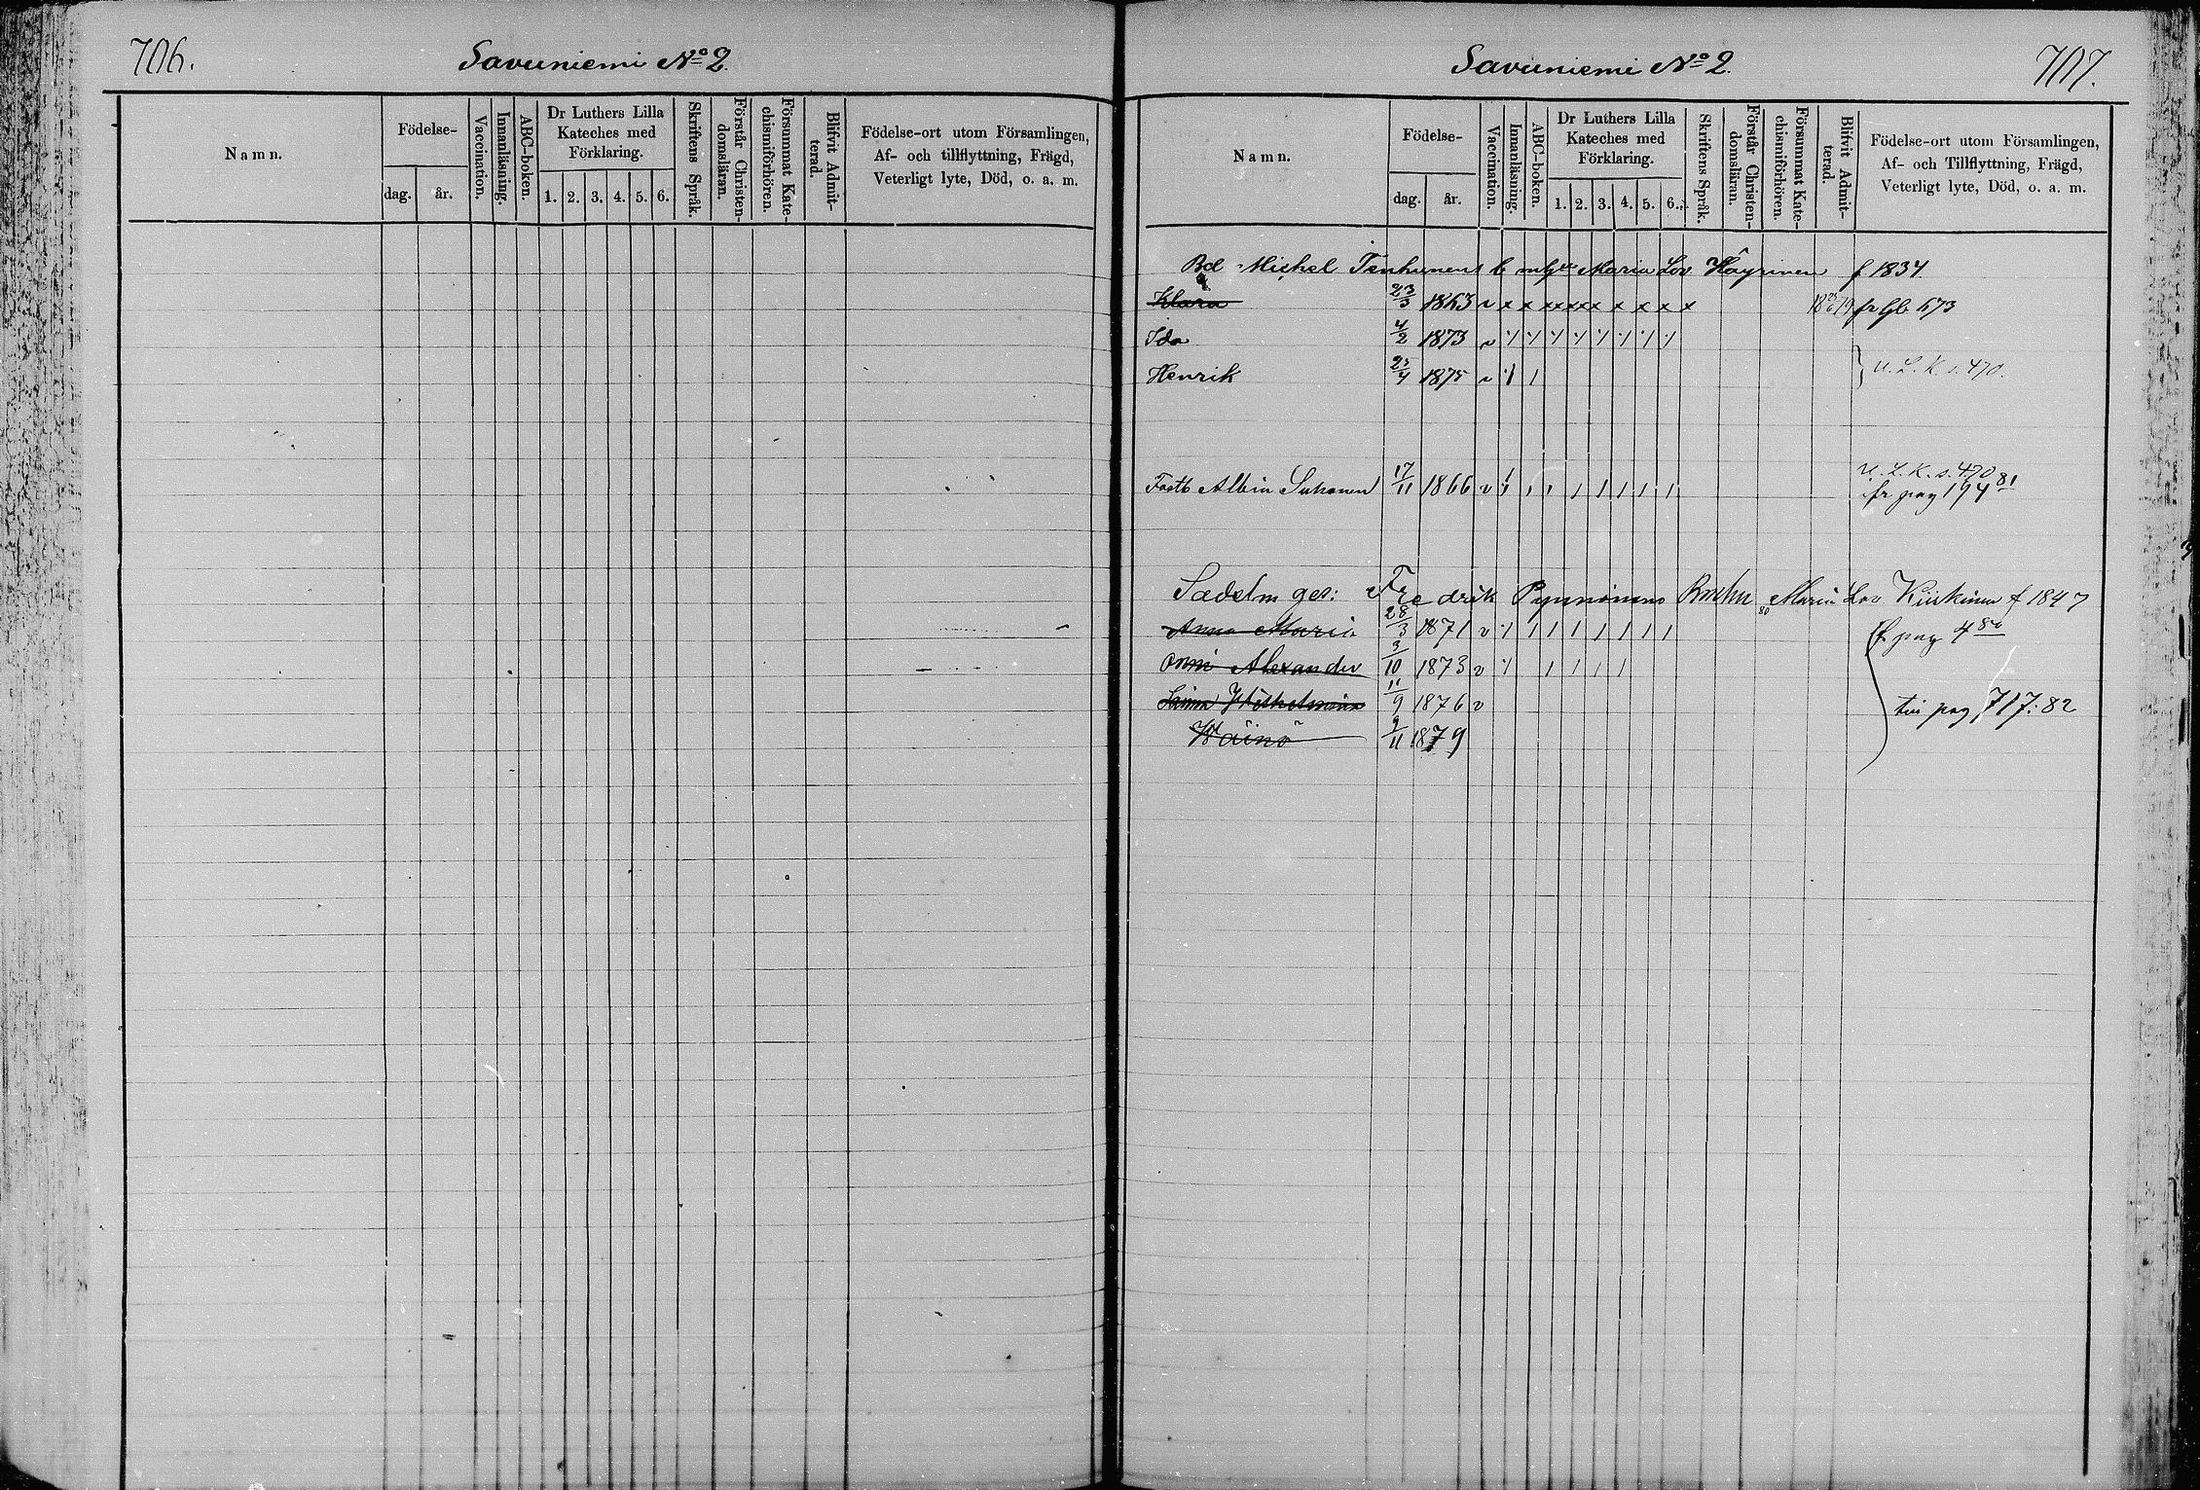 706.
Savuniemi No 2.
Namn.
Födelse-
dag.
år.
Vaccination.
Innanläsning.
ABC-boken.
Dr Luthers Lilla
Kateches med
Förklaring.
1. 2. 3. 4. 5. 6.
Skriftens Språk.
Förstår Christen-
domsläran.
Försummat Kate-
chismiförhören.
Blifvit Admit-
terad.
Födelse-ort utom Församlingen,
Af- och tillflyttning, Frägd,
Veterligt lyte, Död, o. a. m.
Savuniemi No 2.
707.
Namn.
Födelse-
dag.
år.
Vaccination.
Innanläsning.
ABC-boken.
Dr Luthers Lilla
Kateches med
Förklaring.
1. 2. 3. 4. 5. 6.
Skriftens Språk.
Förstår Christen-
domsläran.
Försummat Kate-
chismiförhören.
Blifvit Admit-
terad.
Födelse-ort utom Församlingen,
Af- och Tillflyttning, Frägd,
Veterligt lyte, Död, o. a. m.
Michel Tenhunens Maria Lov Häyrinen f 1834
Klara 23/3 1863 v x x x x x x x x x x x
Ida 4/2 1873 v
Henrik 1875 v
u. L. K. s. 470.
Albin Suhonen 17/11 1866 v
u. L. K. s. 470
fr pag 194 81
Fredrik Pynnönens Maria Lov f 1847
Anna Maria 28/3 1871 v
pag 4 80
Onni Alexander 3/10 1873 v
Wilhelmina 11/9 1876 v
pag 717: 82
Wäinö 9/11 1879